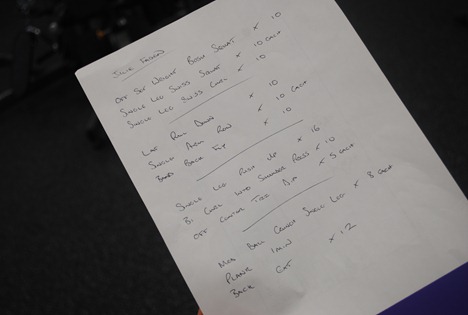 OFF SET WEIGHT BOSU SQUAT x 10
SINGLE LEG SWISS SQUAT x 10 EACH
SINGLE LEG SWISS CURL x 10
LAT PULL DOWN x 10
SINGLE ARM ROW x 10 EACH
BAND BACK FLY x 10
SINGLE LEG PUSH UP x 16
BI CURL INTO SHOULDER PRESS x 10
OFF CENTRE TOE DIP x 5 EACH
MED BALL CRUNCH SINGLE LEG x 8 EACH
PLANK 1 MIN
BACK EXT x 12